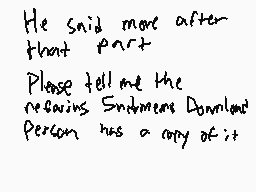 He said more after
that part
Please tell me the
Download
Person has a copy of it